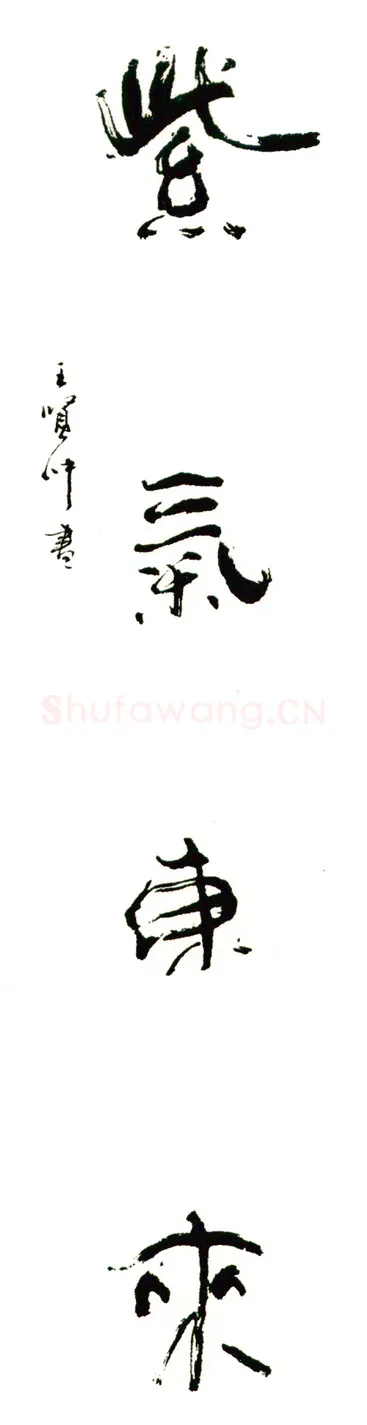 紫氣東來
王賢仲書
Shufawang.CN